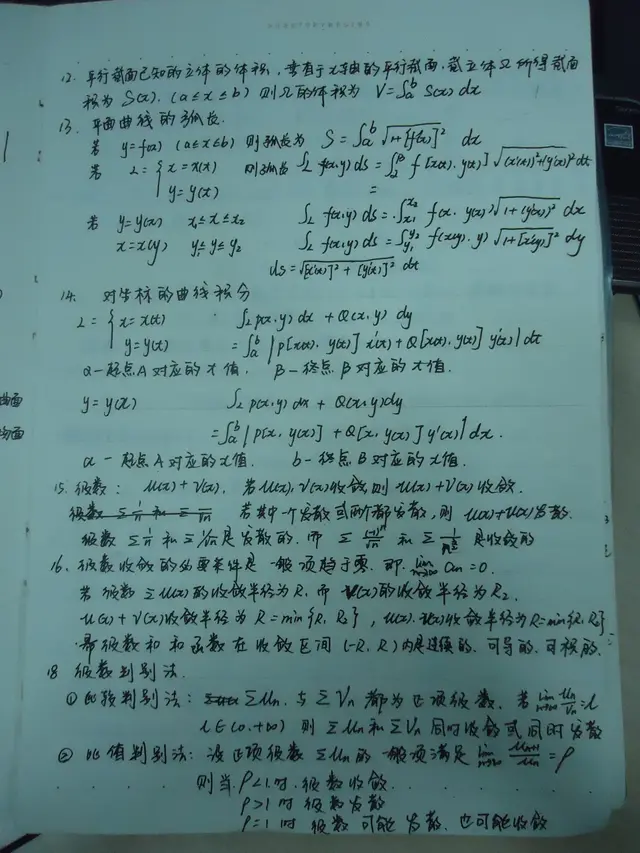 12. 平行截面已知的立体的体积,垂直于x轴的平行截面,截立体Ω所得截面
积为 S(x). (a≤x≤b) 则Ω的体积为 V=∫_a^b S(x) dx
13. 平面曲线的弧长.
若 y=f(x) (a≤x≤b) 则弧长为 S=∫_a^b √(1+[f'(x)]²) dx
若 L={x=x(t) 则弧长 ∫_L f(x,y)ds=∫_α^β f[x(t),y(t)]√((x'(t))²+(y'(t))²)dt
y=y(t) =
若 y=y(x) x₁≤x≤x₂ ∫_L f(x,y)ds=∫_{x₁}^{x₂} f(x,y(x))√(1+(y'(x))²) dx
x=x(y) y₁≤y≤y₂ ∫_L f(x,y)ds=∫_{y₁}^{y₂} f(x(y),y)√(1+[x'(y)]²) dy
ds=√([x'(t)]²+[y'(t)]²) dt
14. 对坐标的曲线积分
L={x=x(t) ∫_L p(x,y) dx + Q(x,y) dy
y=y(t) =∫_α^β |p[x(t),y(t)] x'(t)+Q[x(t),y(t)] y'(t)|dt
α-起点A对应的t值. β-终点B对应的t值.
曲面
y=y(x) ∫_L p(x,y)dx + Q(x,y)dy
=∫_a^b |p[x,y(x)] + Q[x,y(x)]y'(x)|dx.
a-起点A对应的x值. b-终点B对应的x值.
15. 级数: u(x)+v(x), 若u(x),v(x)收敛,则u(x)+v(x)收敛.
级数 Σ1/n 和 Σ1/√n 若其中一个发散或两个都发散,则 u(x)+v(x)发散.
级数 Σ1/n 和 Σ1/√n是发散的.而 Σ(-1)ⁿ/√n 和 Σ1/n² 是收敛的
16. 级数收敛的必要条件是一般项趋于零.即 lim_{n→∞} aₙ=0.
若级数 Σu(x)的收敛半径为R₁而 v(x)的收敛半径为R₂.
u(x)+v(x)收敛半径为R=min{R₁,R₂}, u(x).v(x)收敛半径为R=min{R₁,R₂}
幂级数和和函数在收敛区间(-R,R)内是连续的.可导的.可积的.
18 级数判别法.
① 比较判别法: Σuₙ与ΣVₙ都为正项级数.若 lim_{n→∞} uₙ/Vₙ=l
l∈(0,+∞) 则 Σuₙ和ΣVₙ同时收敛或同时发散
② 比值判别法: 设正项级数 Σuₙ的一般项满足 lim_{n→∞} uₙ₊₁/uₙ=ρ
则当 ρ<1时.级数收敛.
ρ>1时 级数发散
ρ=1时 级数可能发散.也可能收敛